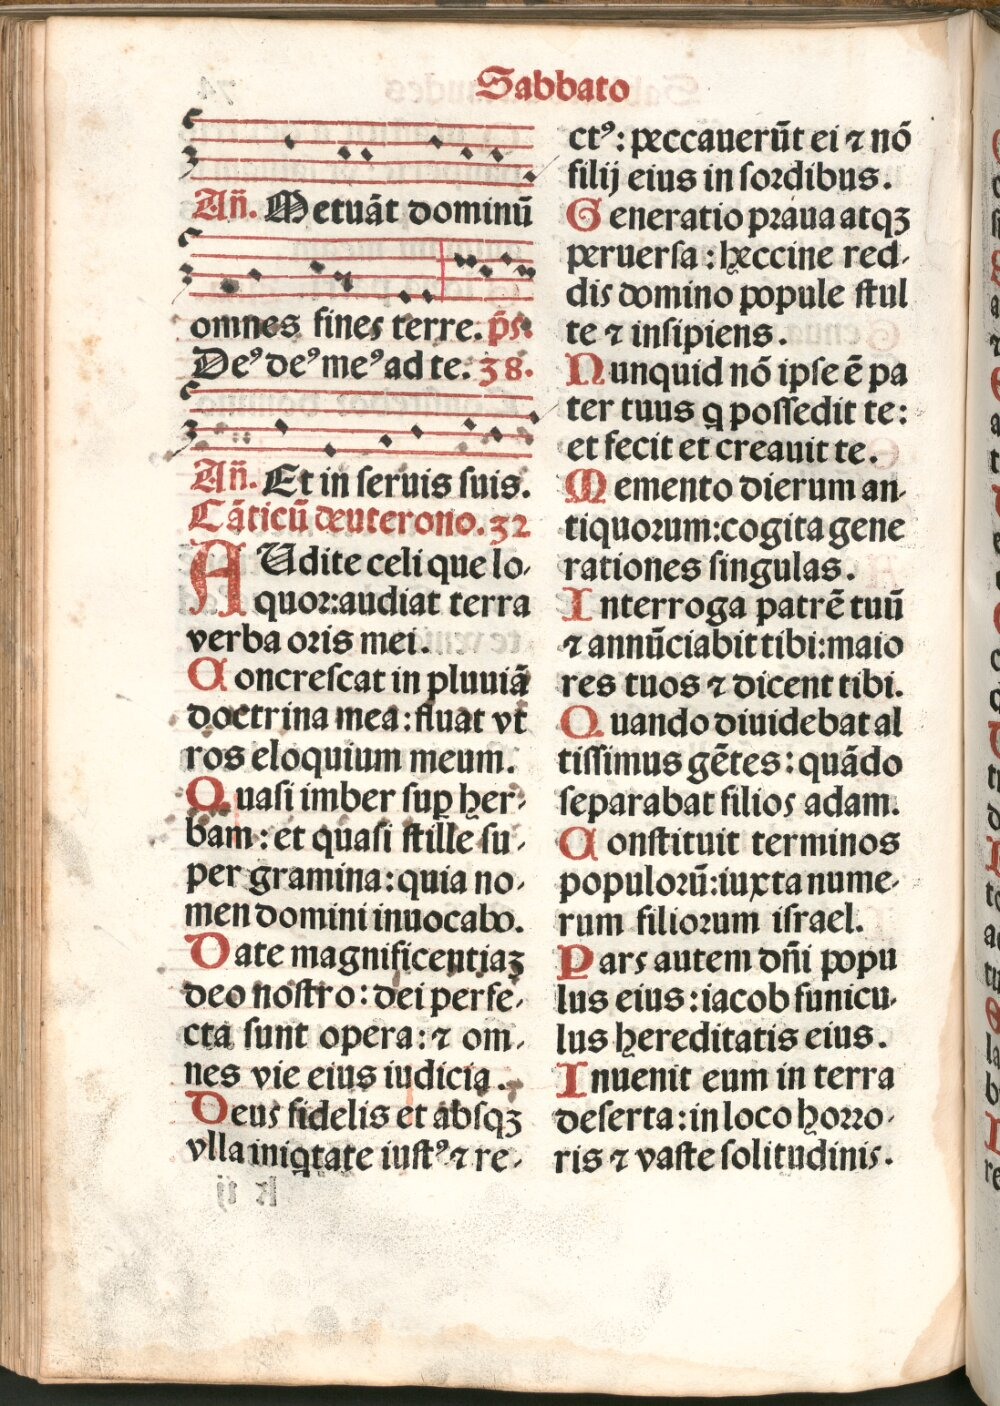 Sabbato
Añ. Metuāt dominū
omnes fines terre. p̄s.
Deꝰ deꝰ meꝰ ad te. 38.
Añ. Et in seruis suis.
Cāticū deuterono. 32
AUdite celi que lo-
quor:audiat terra
verba oris mei.
Concrescat in pluuiā
doctrina mea: fluat vt
ros eloquium meum.
Quasi imber suꝑ her-
bam: et quasi stille su-
per gramina: quia no-
men domini inuocabo.
Date magnificentiaꝫ
deo nostro: dei perfe-
cta sunt opera: ⁊ om-
nes vie eius iudicia.
Deus fidelis et absqꝫ
vlla iniqtate iustꝰ ⁊ re-
ctꝰ: peccauerūt ei ⁊ nō
filij eius in sordibus.
Generatio praua atqꝫ
peruersa: heccine red-
dis domino popule stul
te ⁊ insipiens.
Nunquid nō ipse ē pa
ter tuus q possedit te:
et fecit et creauit te.
Memento dierum an-
tiquorum: cogita gene
rationes singulas.
Interroga patrē tuū
⁊ annūciabit tibi: maio
res tuos ⁊ dicent tibi.
Quando diuidebat al
tissimus gētes: quādo
separabat filios adam.
Constituit terminos
populorū: iuxta nume-
rum filiorum israel.
Pars autem dñi popu
lus eius: iacob funicu-
lus hereditatis eius.
Inuenit eum in terra
deserta: in loco horro-
ris ⁊ vaste solitudinis.